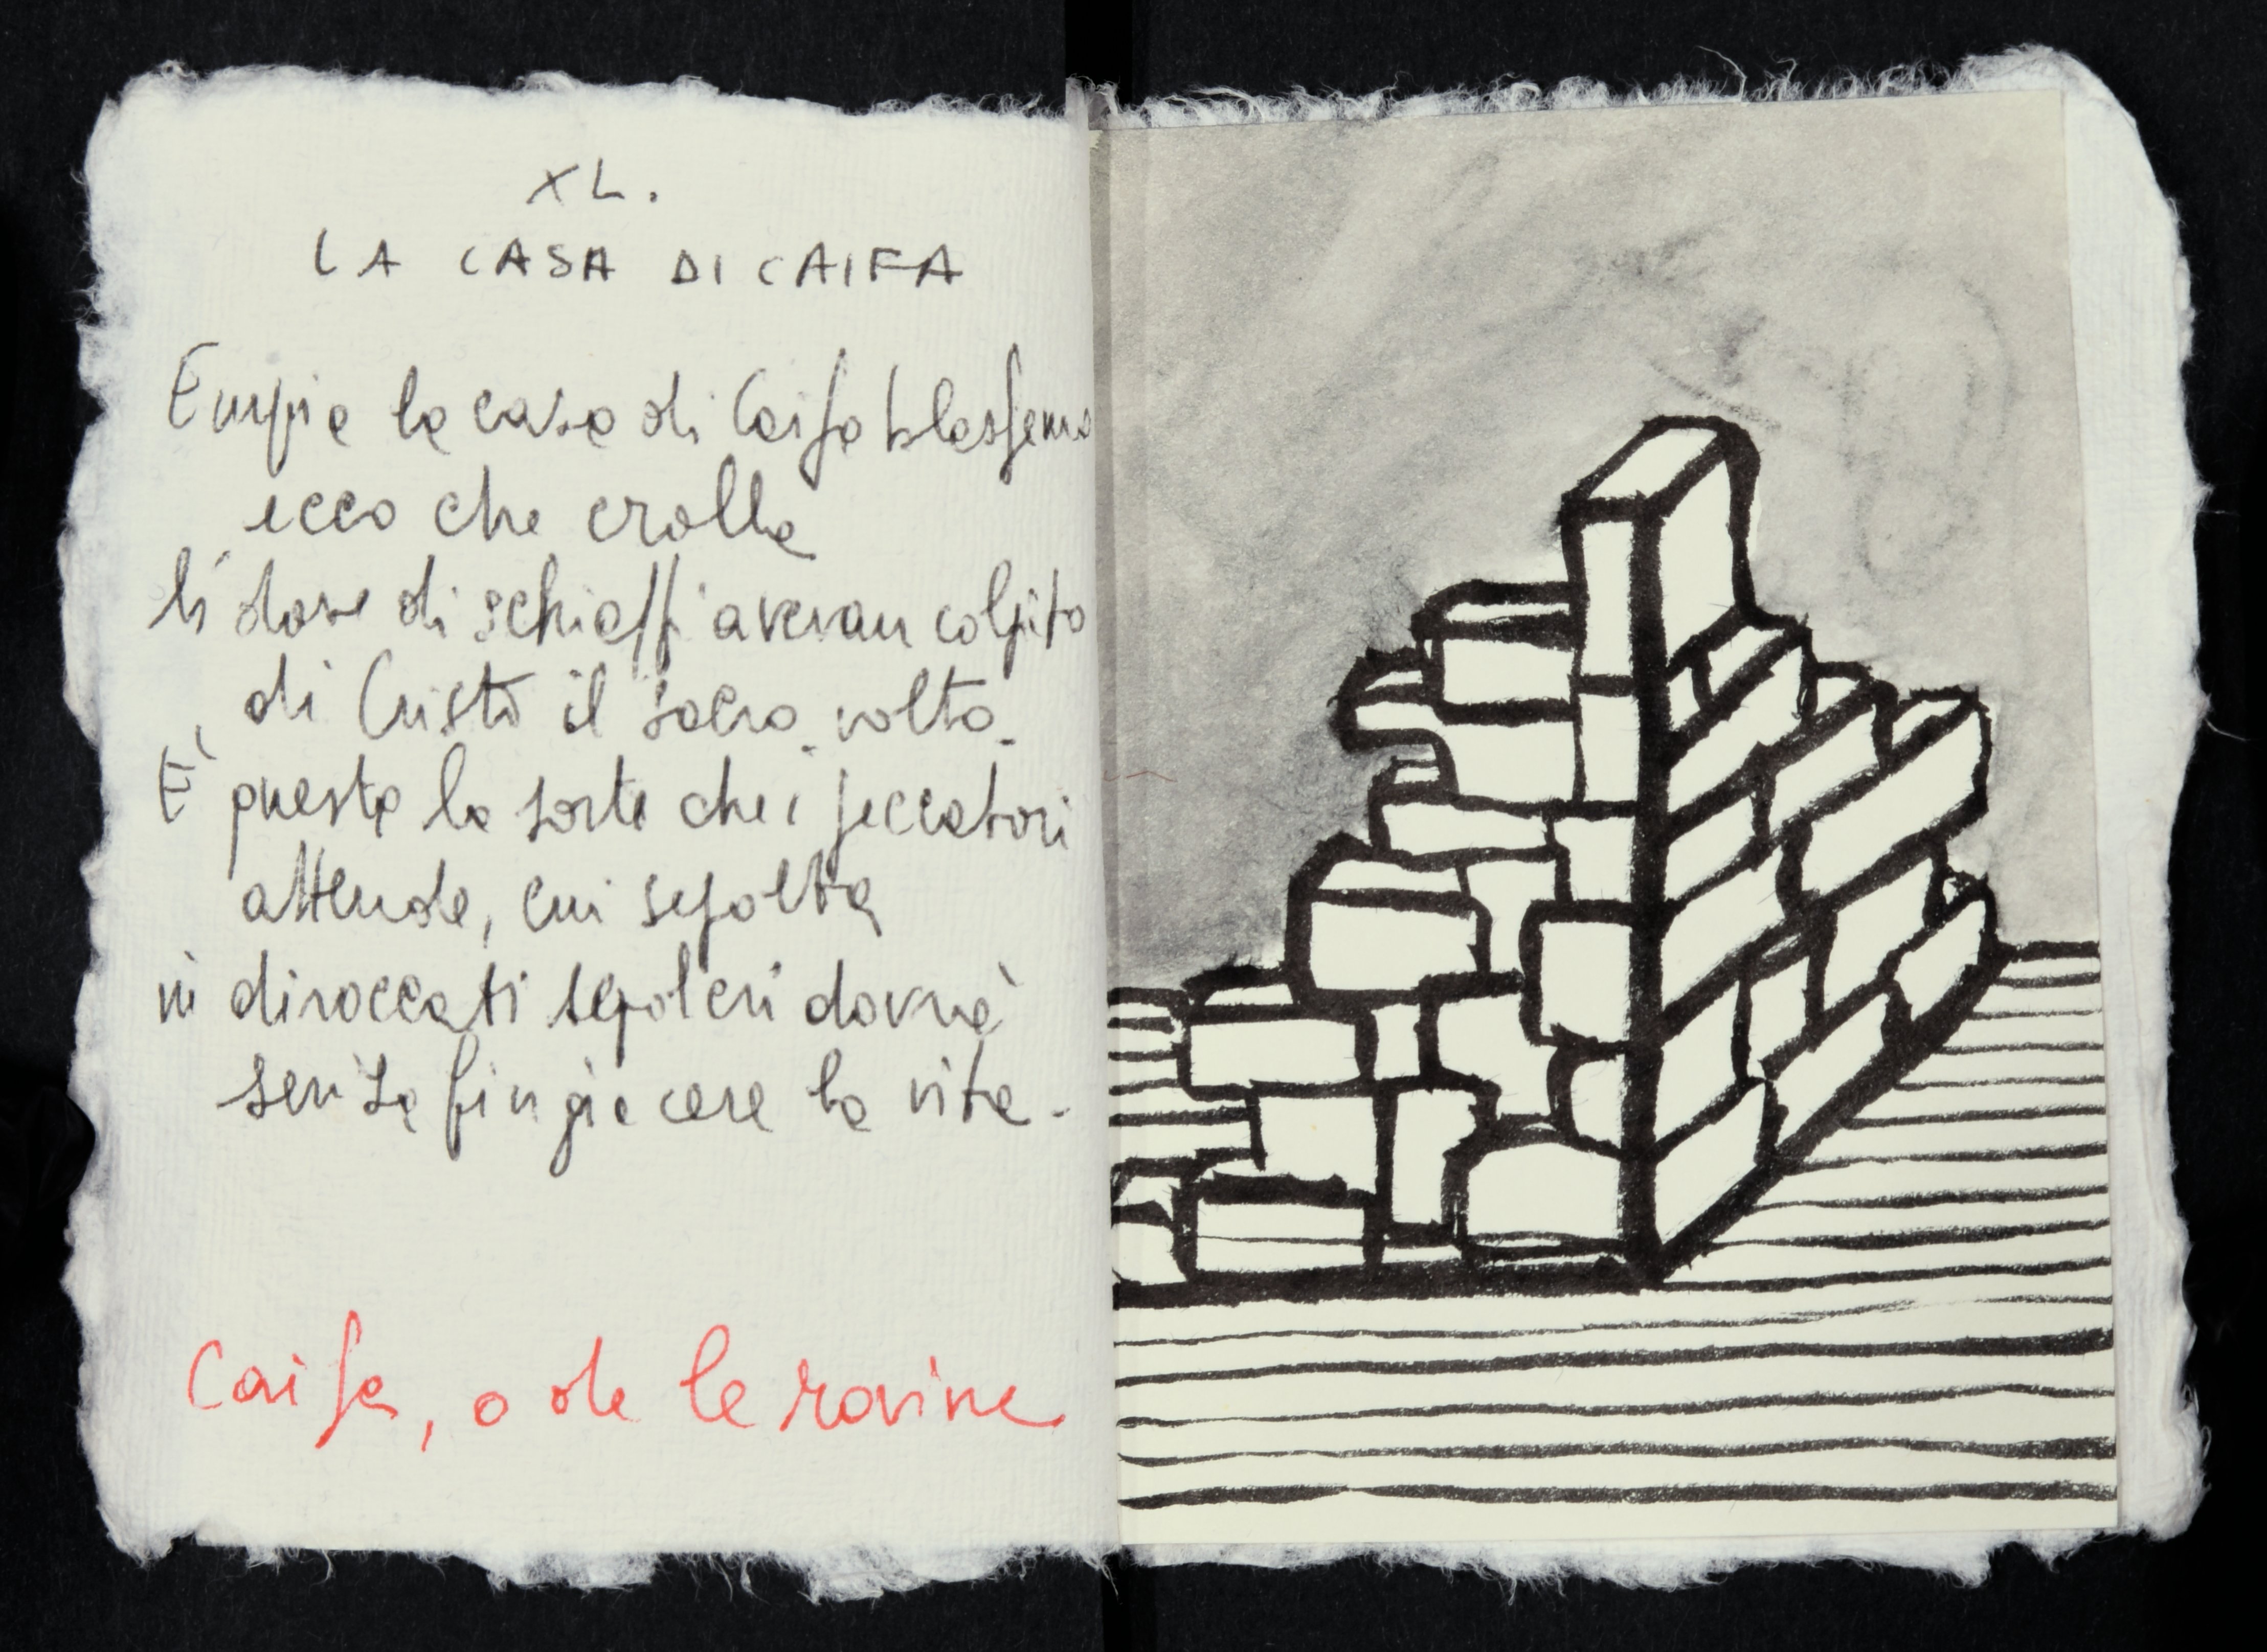 XL.
LA CASA DI CAIFA
Empia la casa di Caifa blasfema
ecco che crolla
lì dove di schiaffi avevan colpito
di Cristo il sacro volto.
È questa la sorte che i peccatori
attende, cui sepolta
in diroccati sepolcri dovrà
senza fin giacere la vita.
Caifa, o de le rovine